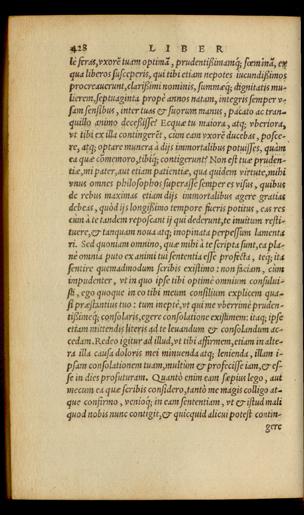 428 LIBER
lé feras, vxorē tuam optimā, prudentißimamq́; fœminā, ex
qua liberos susceperis, qui tibi etiam nepotes iucundißimos
procreauerunt, clarißimi nominis, summæq́; dignitatis mu-
lierem, septuaginta propè annos natam, integris semper v-
sam sensibus, inter tuas & suorum manus, pacato ac tran-
quillo animo deceßisse? Ecquæ tu maiora, atq́; vberiora,
vt tibi ex illa contingerēt, cùm eam vxorē ducebas, posce-
re, atq́; optare munera à dijs immortalibus potuisses, quàm
ea quæ cōmemoro, tibiq́; contigerunt? Non est tuæ pruden-
tiæ, mi pater, aut etiam patientiæ, qua quidem virtute, mihi
vnus omnes philosophos superasse semper es visus, quibus
de rebus maximas etiam dijs immortalibus agere gratias
debeas, quòd ijs longißimo tempore fueris potitus, eas res
cùm à te tandem reposcant ij qui dederunt, te inuitum resti-
tuere, & tanquam noua atq́; inopinata perpessum lamenta
ri. Sed quoniam omnino, quæ mihi à te scripta sunt, ea pla-
nè omnia puto ex animi tui sententia esse profecta, teq́; ita
sentire quemadmodum scribis existimo: non faciam, cùm
impudenter, vt in quo ipse tibi optimè omnium consului-
sti, ego quoque in eo tibi meum consilium explicem quasi
præstantius tuo: tum ineptè, vt qui me vberrimè pruden-
tißimeq́; consolaris, egere consolatione existimem: itaq́; ipse
etiam mittendis literis ad te leuandum & consolandum ac-
cedam. Redeo igitur ad illud, vt tibi affirmem, etiam in alte-
ra illa causa doloris mei minuenda atq́; lenienda, illam i-
psam consolationem tuam, multùm & profecisse iam, & es-
se in dies profuturam. Quantò enim eam sæpius lego, aut
mecum ea quæ scribis considero, tantò me magis colligo at-
que confirmo, venioq́; in eam sententiam, vt & istud mali
quod nobis nunc contigit, & quicquid alicui potest contin-
gere